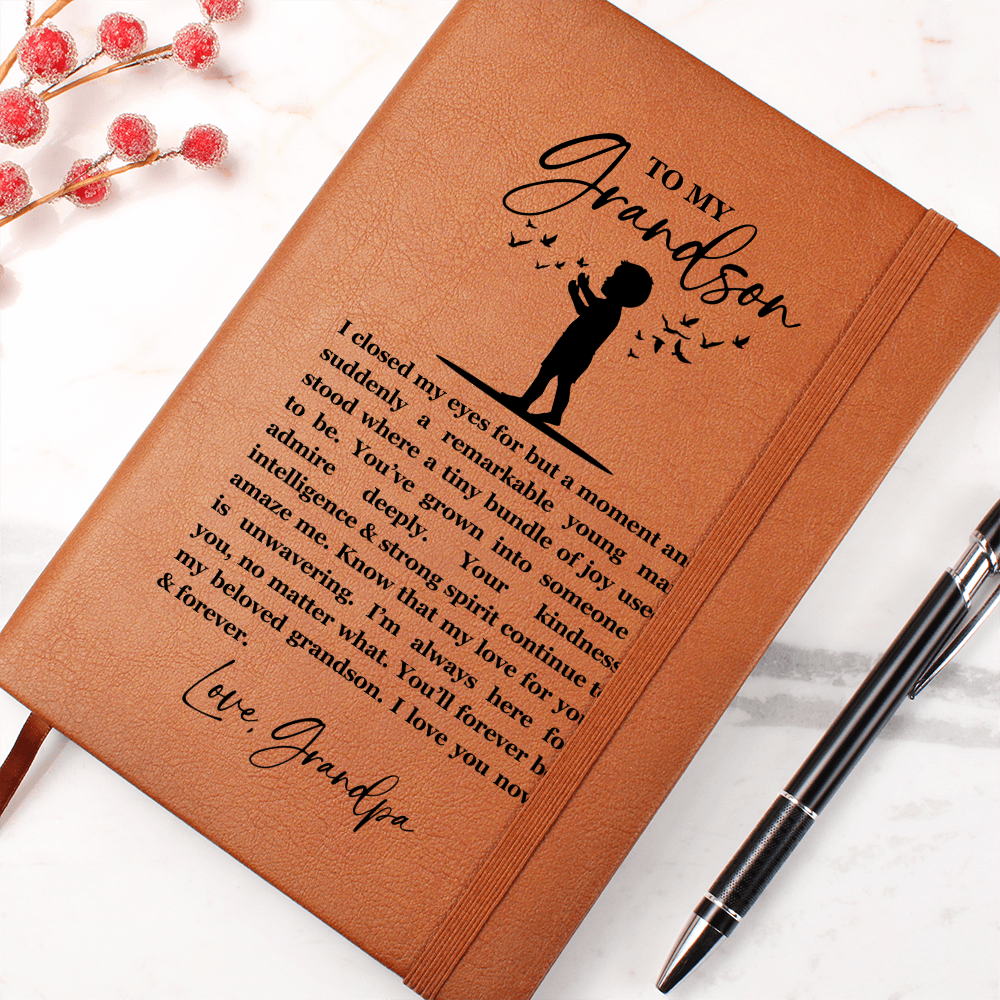 TO MY
Grandson
I closed my eyes for but a moment an
suddenly a remarkable young ma
stood where a tiny bundle of joy use
to be. You've grown into someone
admire deeply. Your kindness
intelligence & strong spirit continue t
amaze me. Know that my love for you
is unwavering. I'm always here fo
you, no matter what. You'll forever b
my beloved grandson. I love you now
& forever.
Love, Grandpa